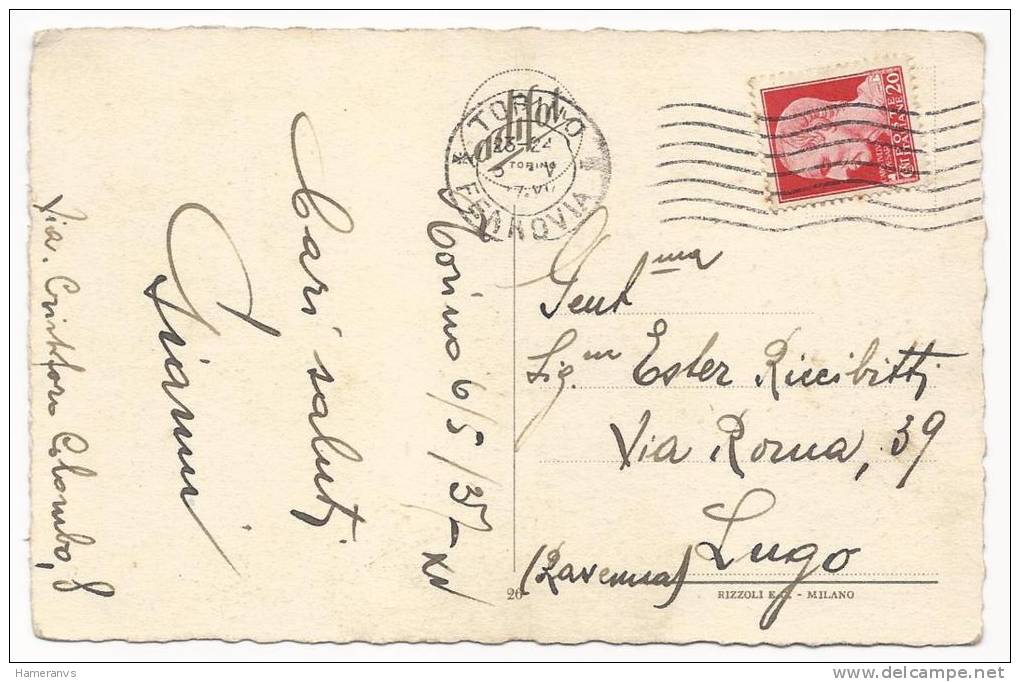 Via. Cristoforo Colombo, 8
Cari saluti
Gianni
Torino 6/5/37-XV
TORINO
FERROVIA
23-24
TORINO
POSTE
ITALIANE
CENT 20
Gent.ma
Sig.na Ester Riccibitti
Via Roma, 39
Lugo
(Ravenna)
26
RIZZOLI E.C. - MILANO
Hameranvs
delcampe.net